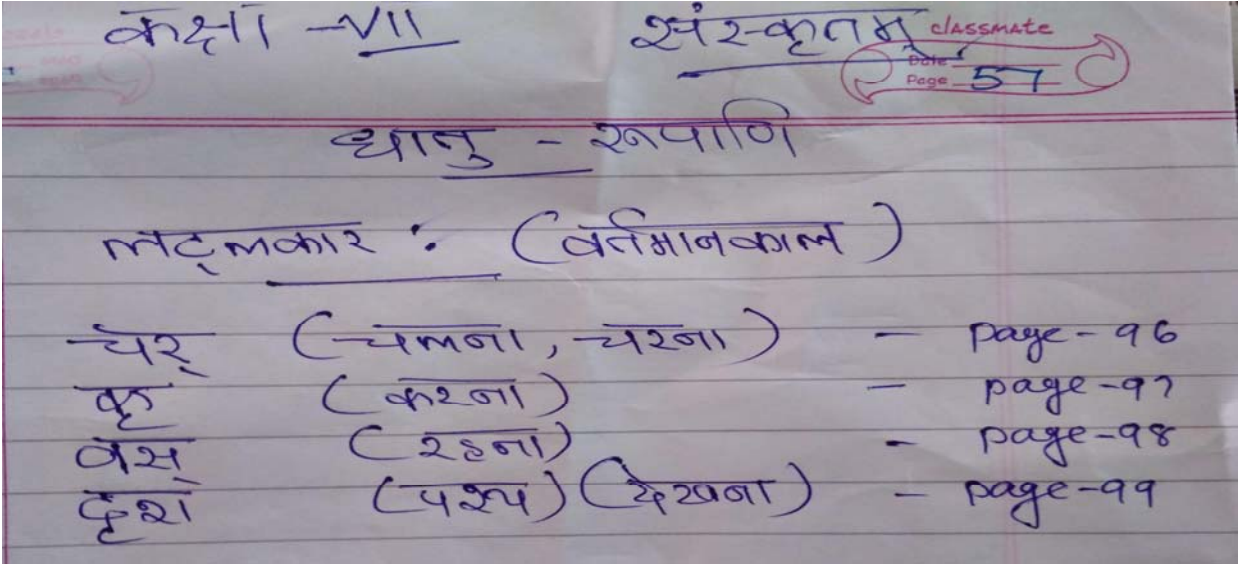 कक्षा -VII संस्कृतम्
classmate
Date
Page 57
धातु - रूपाणि
लट्लकार : (वर्तमानकाल)
चर् (चलना, चरना) - page-96
कृ (करना) - page-97
वस् (रहना) - page-98
दृश (पश्य) (देखना) - page-99